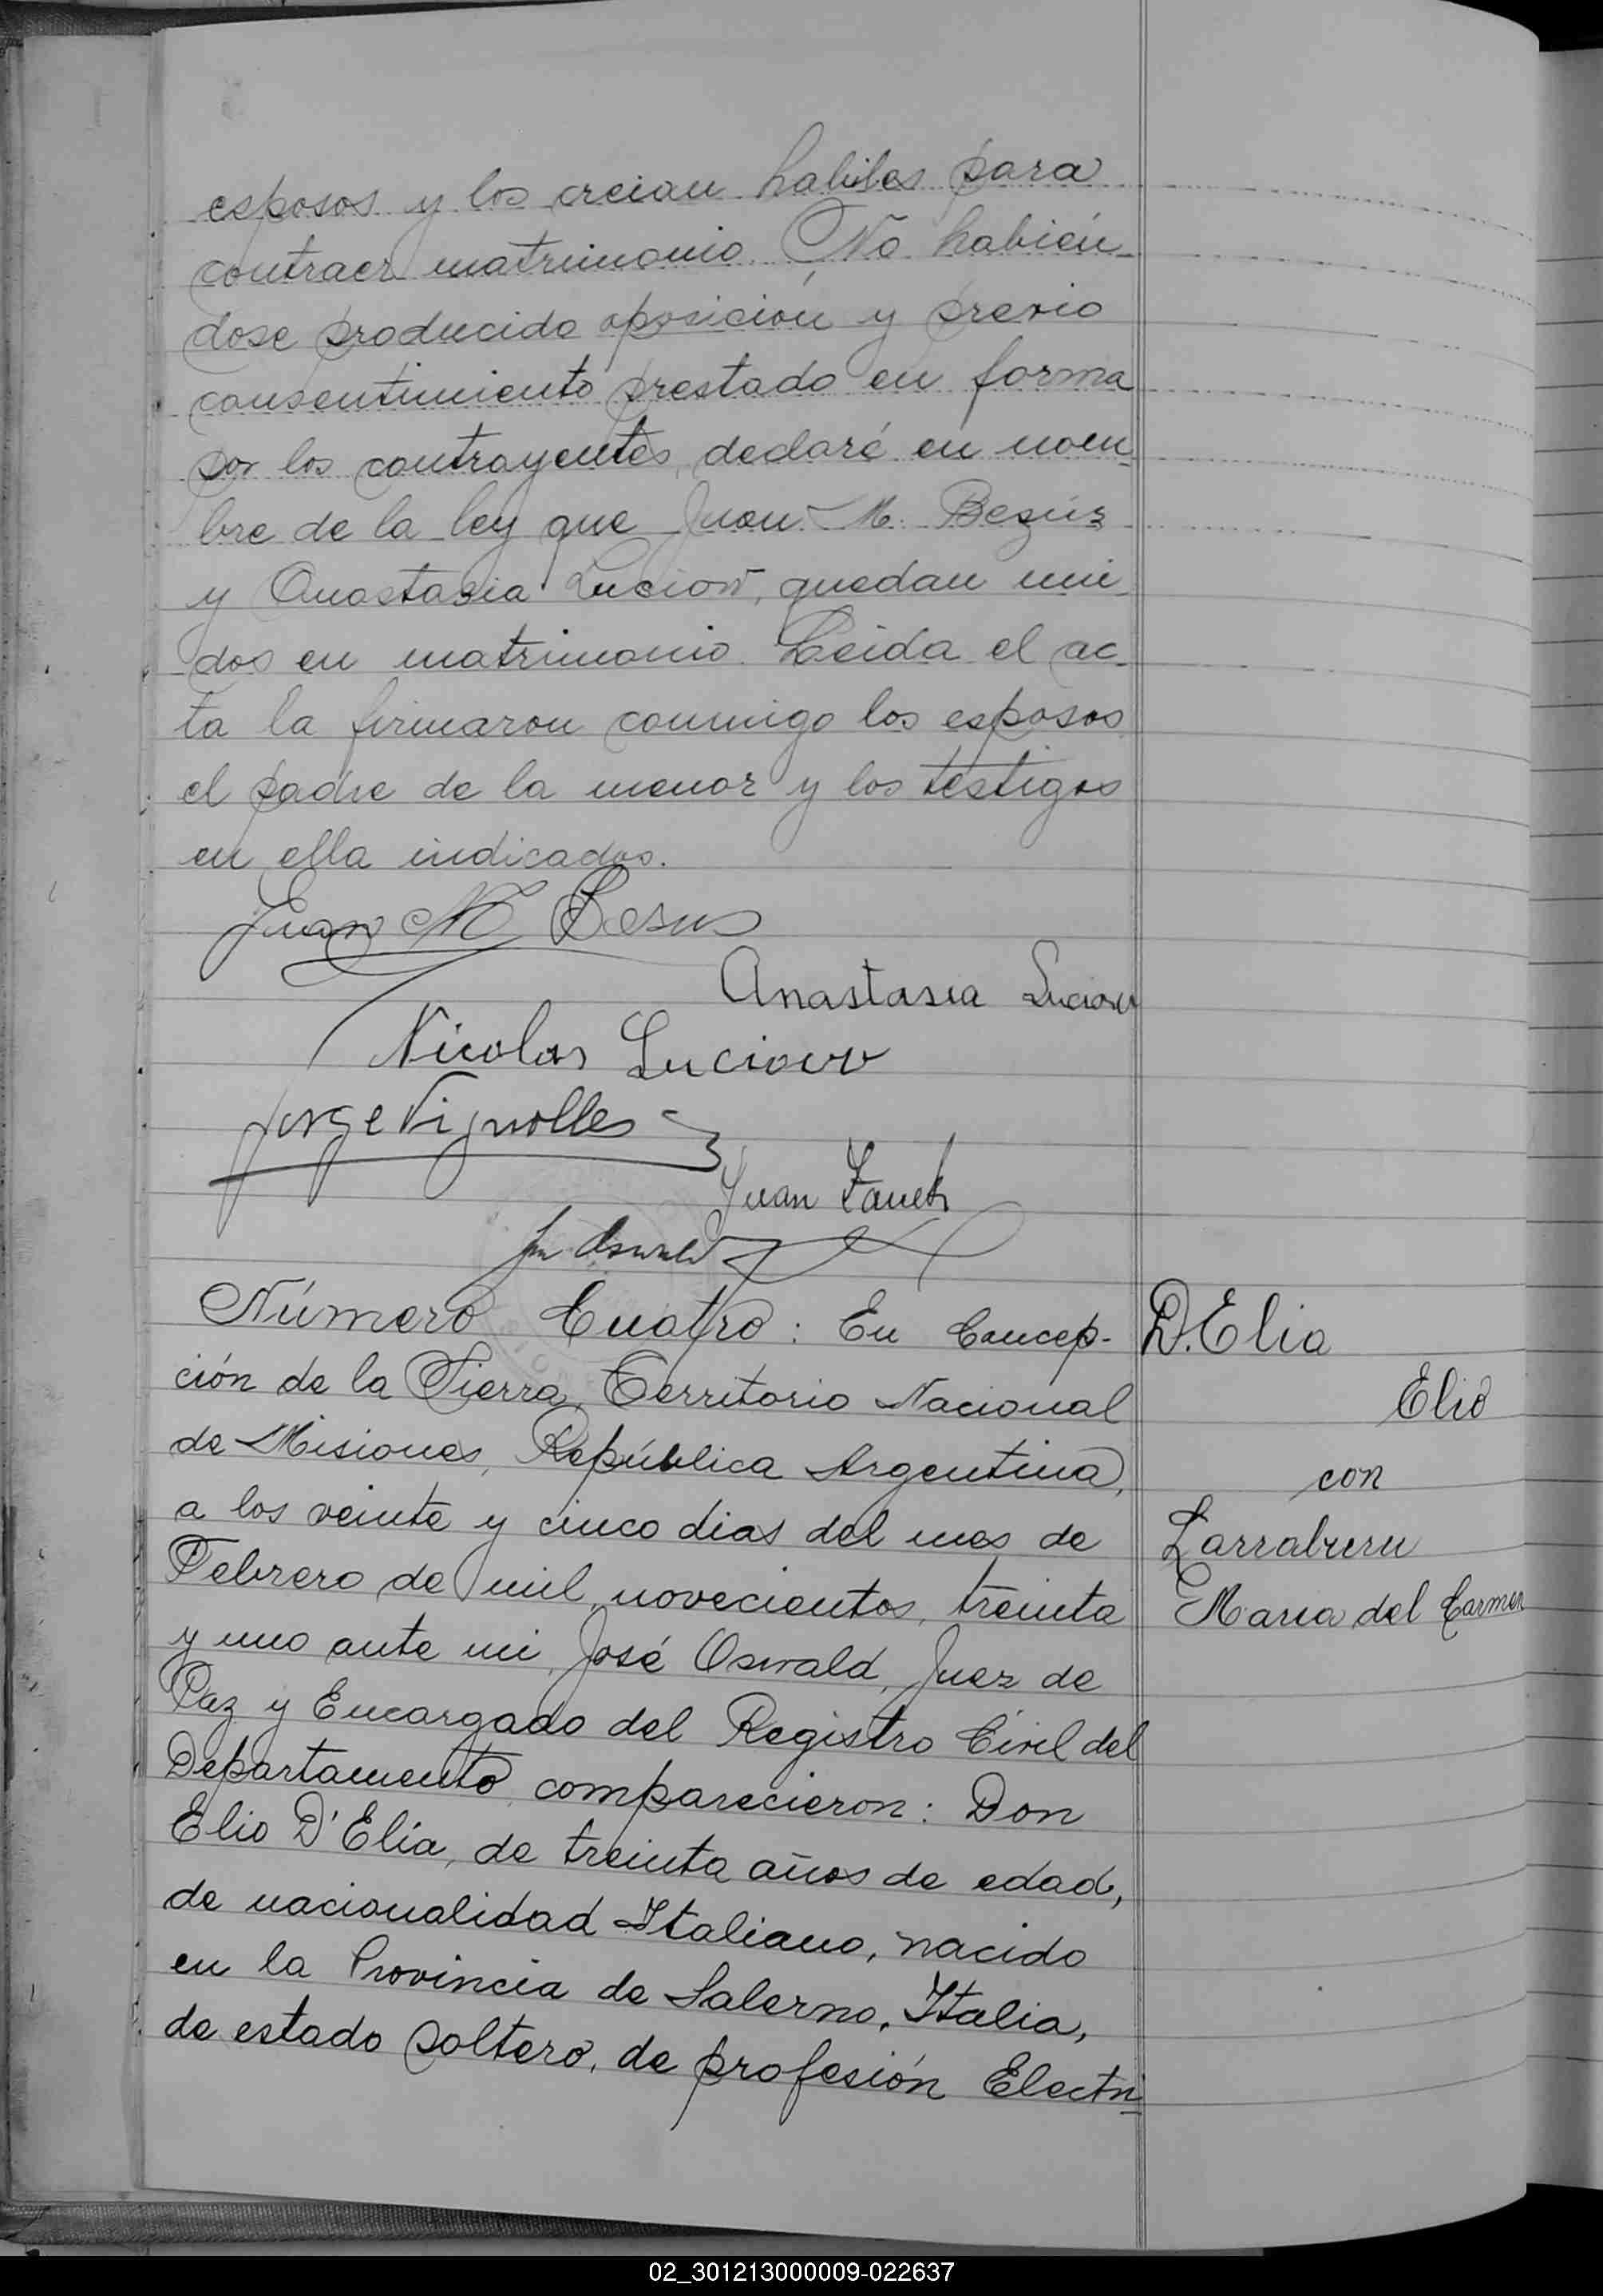 esposos y los creian habiles para
contraer matrimonio. No habién-
dose producido oposición y previo
consentimiento prestado en forma
por los contrayentes, declaré en nom-
bre de la ley que Juan M. Bezús
y Anastasia Luciow, quedan uni-
dos en matrimonio. Leida el ac-
ta la firmaron conmigo los esposos
el padre de la menor y los testigos
en ella indicados.
Juan M Besus
Anastasia Luciow
Nicolas Luciow
Jorge Vignolles
Juan
Oswald
Número Cuatro: En Concep-
ción de la Sierra, Territorio Nacional
de Misiones, República Argentina,
a los veinte y cinco dias del mes de
Febrero de mil novecientos treinta
y uno ante mi, José Oswald, Juez de
Paz y Encargado del Registro Civil del
Departamento, comparecieron: Don
Elio D'Elía, de treinta años de edad,
de nacionalidad Italiano, nacido
en la Provincia de Salerno, Italia,
de estado soltero, de profesión Electri-
D.Elia
Elio
con
Larraburu
Maria del Carmen
02_301213000009-022637